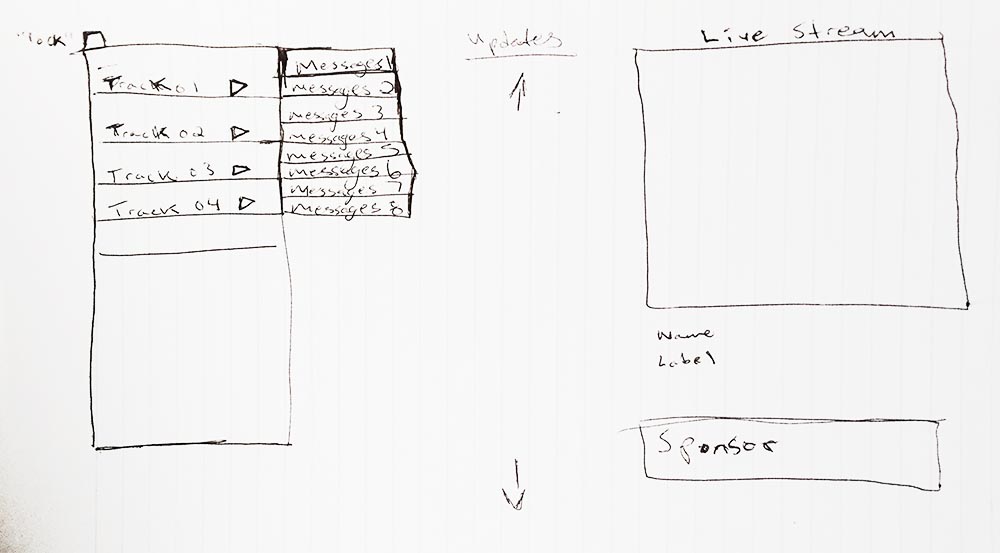 "lock"
Track 01
Track 02
Track 03
Track 04
Messages 1
messages 2
messages 3
messages 4
messages 5
messages 6
messages 7
messages 8
Updates
Live Stream
Name
Label
Sponsor